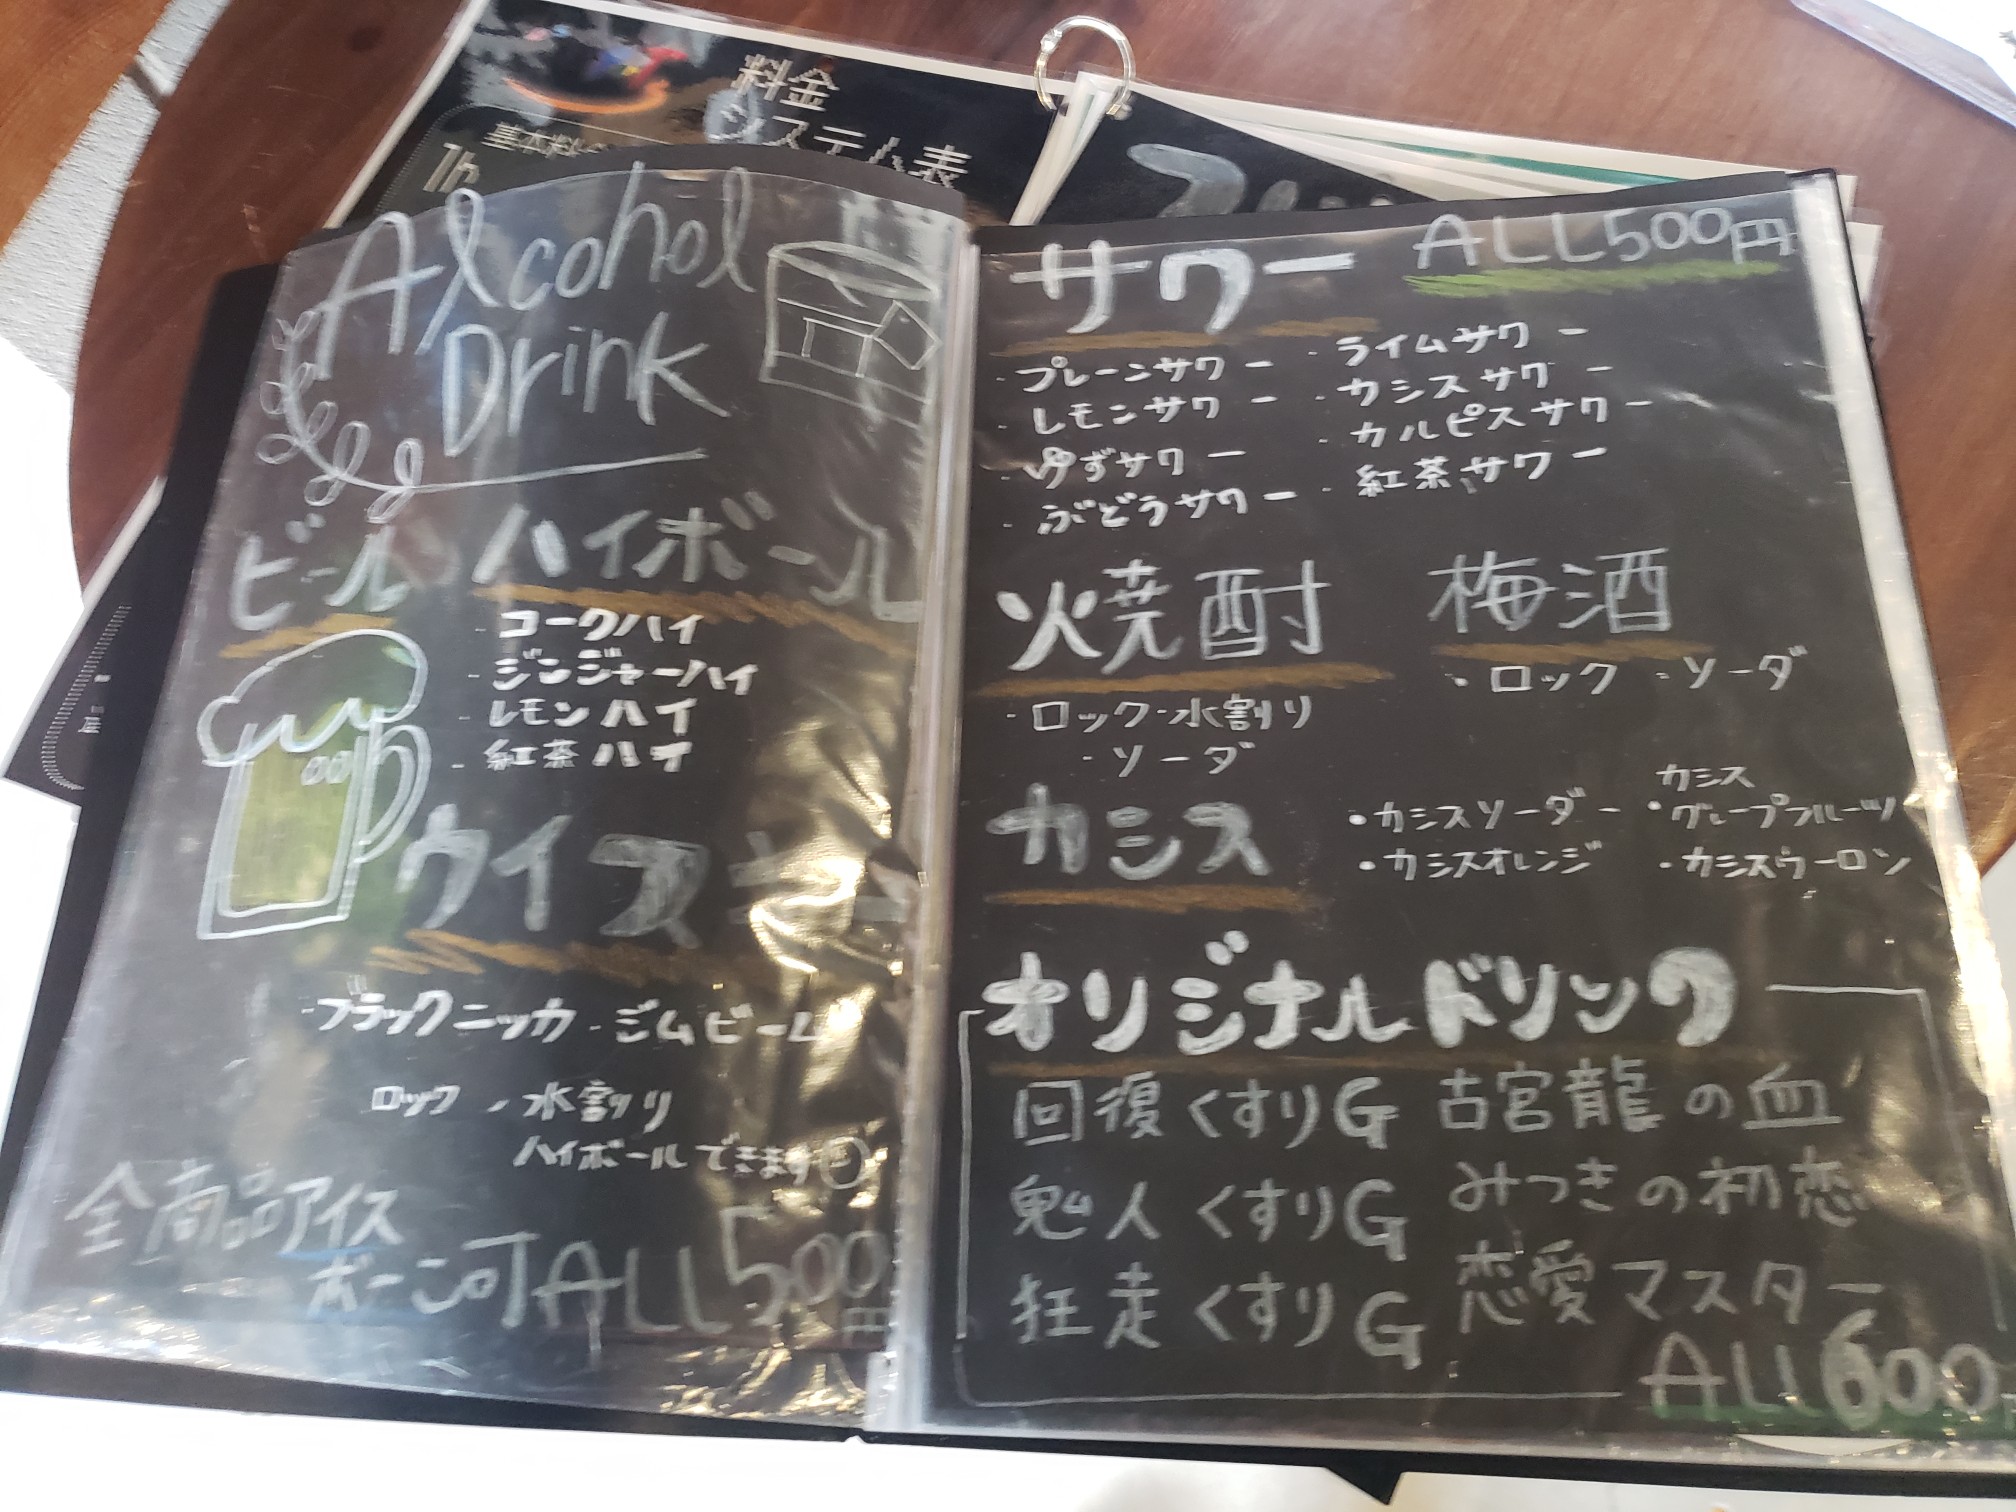 料金
システム表
基本料金
1h
Alcohol
Drink
ビール
ハイボール
- コークハイ
- ジンジャーハイ
- レモンハイ
- 紅茶ハイ
ウイスキー
- ブラックニッカ - ジムビーム
ロック - 水割り
ハイボールできます
全商品アイス
ボーこ可 ALL500円
サワー ALL500円
- プレーンサワー
- レモンサワー
- ゆずサワー
- ぶどうサワー
- ライムサワー
- カシスサワー
- カルピスサワー
- 紅茶サワー
焼酎
- ロック - 水割り
- ソーダ
梅酒
・ロック - ソーダ
カシス
・カシスソーダー
・カシスオレンジ
・カシスグレープフルーツ
・カシスウーロン
オリジナルドリンク
回復くすりG
鬼人くすりG
狂走くすりG
古宮龍の血
みつきの初恋
恋愛マスター
ALL600